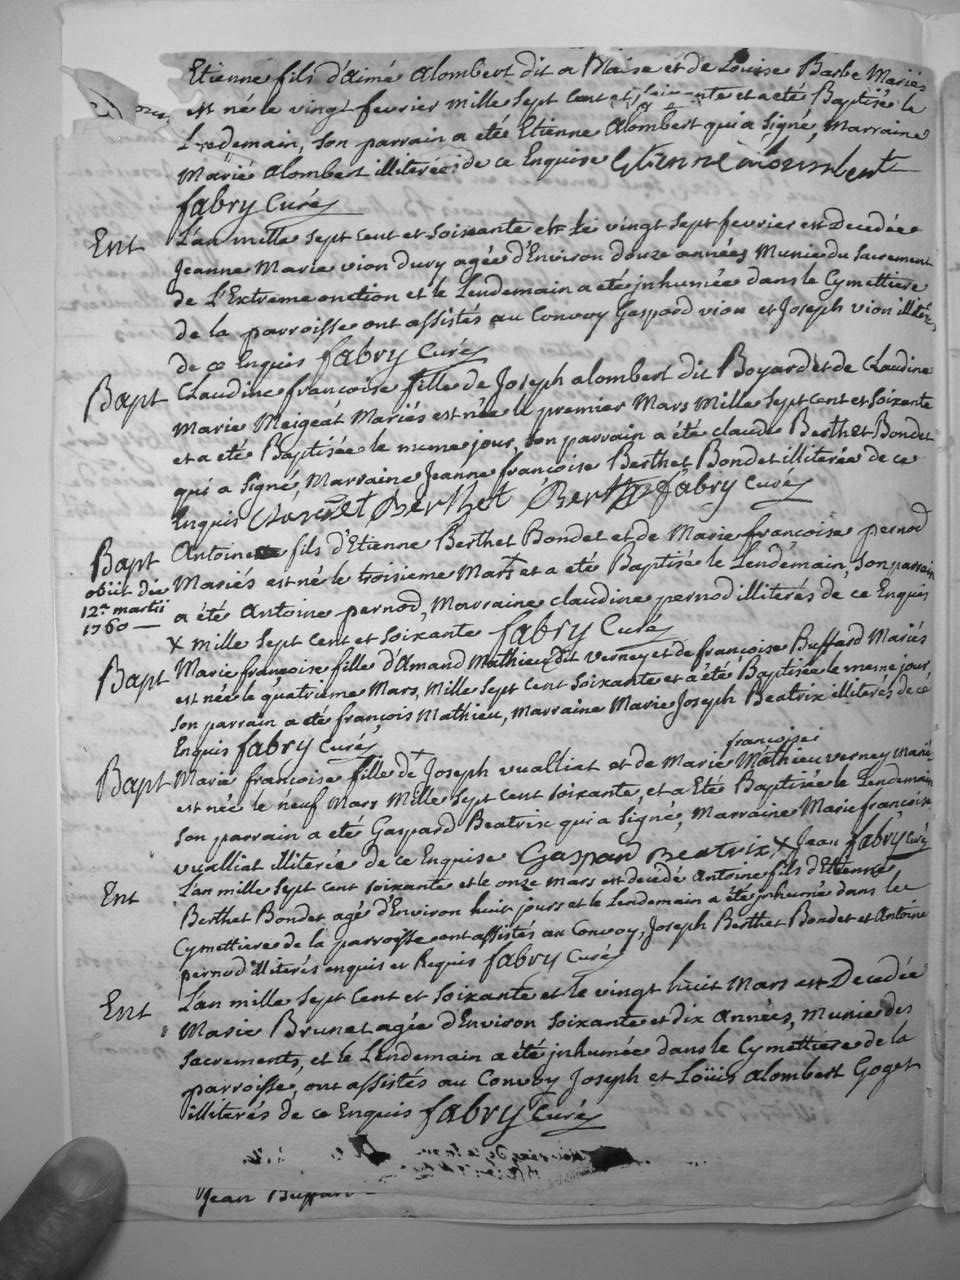 Etienne fils d'Aimé Alombert dit a Blaise et de Louise Barbe Mariés
est né le vingt fevrier mille sept cent et soixante et a eté Baptisé le
Lendemain, son parrain a eté Etienne Alombert qui a signé, Marraine
Marie Alombert illiterée de ce Enquise Etienne aloumbert
fabry Curé
Ent L'an mille sept cent et soixante et le vingt sept fevrier est Decedée
Jeanne Marie vion dury agée d'Environ douze années Munie du Sacrement
de L'Extreme onction et le Lendemain a eté jnhumée dans le Cymettiere
de la parroisse ont assistés au Convoy Gaspard vion et Joseph vion illiterés
de ce Enquis fabry Curé
Bapt Claudine francoise fille de Joseph alombert dit Boyard et de Claudine
Marie Meigeat Mariés est née le premier Mars Mille Sept Cent et Soixante
et a eté Baptisée le meme jour, son parrain a eté claude Berthet Bondet
qui a signé, Marraine Jeanne francoise Berthet Bondet illiterée de ce
Enquis Berthet fabry Curé
Bapt Antoine fils d'Etienne Berthet Bondet et de Marie francoise pernod
obiit die Mariés est né le troisieme Mars + et a eté Baptisé le Lendemain, Son parrain
12a martii a été Antoine pernod, Marraine claudine pernod illiterés de ce Enquis
1760 — x mille Sept Cent et Soixante fabry Curé
Bapt Marie francoise fille d'Amand Mathieu dit verney et de francoise Buffard Mariés
est née le quatrieme Mars, Mille Sept Cent Soixante et a été Baptisée le meme jour
Son parrain a eté francois Mathieu, Marraine Marie Joseph Beatrix illiterés de ce
Enquis fabry Curé
francoise
Bapt Marie francoise fille de + Joseph vualliat et de Marie Mathieu verney Mariés
est née le neuf Mars Mille Sept Cent soixante, et a Eté Baptisée le Lendemain
Son parrain a eté Gaspard Beatrix qui a Signé, Marraine Marie francoise
vualliat illiterée de ce Enquise Gaspard Beatrix x Jean fabry Curé
Ent L'an mille Sept Cent Soixante et le onze Mars est decedé Antoine fils d'Etienne
Berthet Bondet agé d'Environ huit jours et le Lendemain a eté jnhumée dans le
Cymettiere de la parroisse ont assistés au Convoy, Joseph Berthet Bondet et Antoine
pernod illiterés enquis et Requis fabry Curé
Ent L'an mille Sept Cent et Soixante et le vingt huit Mars est Decedée
Marie Brunet agée d'Environ Soixante et dix Années, Munie des
Sacrements, et le Lendemain a été jnhumée dans le Cymettiere de la
parroisse, ont assistés au Convoy Joseph et Loüis Alombert Goget
illiterés de ce Enquis fabry Curé
Jean Buffard